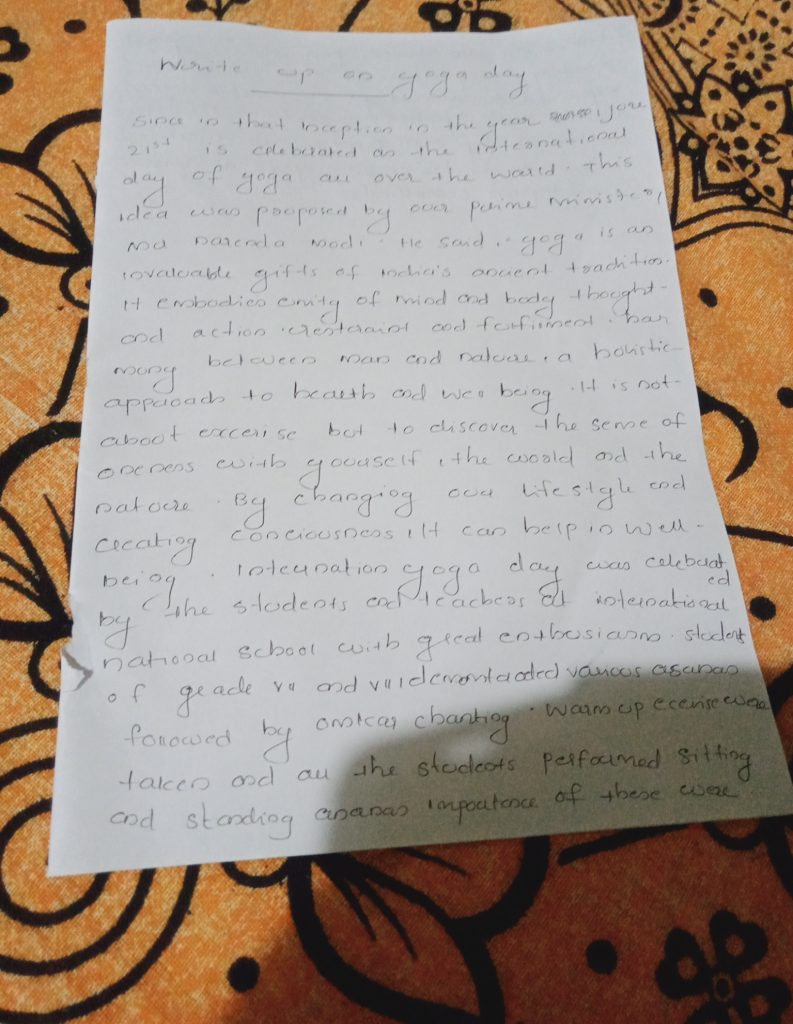 Write up on yoga day
Since in that inception in the year June
21st is celeberated as the international
day of yoga all over the world. This
idea was proposed by our prime minister,
narenda modi. He said, yoga is an
invaluable gifts of india's ancient tradition.
It embodies unity of mind and body thought
and action, restraint and fulfilment. har
mony between man and nature, a holistic
approach to health and well being. It is not
about excerise but to discover the sense of
oneness with youself, the world and the
nature. By changing our lifestyle and
creating conciousness, it can help in well-
being. Internation yoga day was celebrat
ed
by the students and teachers at international
national school with great enthusiasm. student
of grade VII and VIII demontraded various asanas
followed by omkar chanting. Warm up excerise were
taken and all the students performed sitting
and standing asanas importance of these were